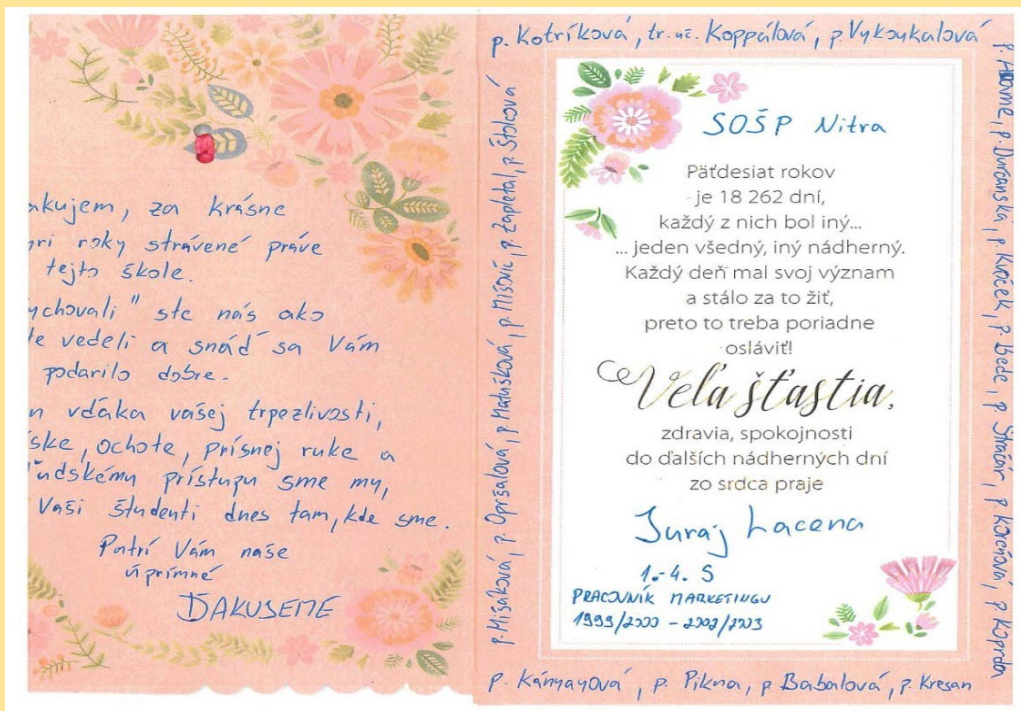 akujem, za krásne
ri roky strávené práve
tejto škole.
ychovali" ste nás ako
te vedeli a snáď sa Vám
podarilo dobre.
n vďaka vašej trpezlivosti,
ske, ochote, prísnej ruke a
ľudskému prístupu sme my,
Vaši študenti dnes tam, kde sme.
Patrí Vám naše
úprimné
ĎAKUJEME
p. Kotríková, tr. uč. Koppálová, p. Vykoukalová
p. Mišaková, p. Opršalová, p. Matušková, p. Mišovič, p. Zapletal, p. Štolcová
SOŠP Nitra
Päťdesiat rokov
je 18 262 dní,
každý z nich bol iný...
... jeden všedný, iný nádherný.
Každý deň mal svoj význam
a stálo za to žiť,
preto to treba poriadne
osláviť!
Veľa šťastia,
zdravia, spokojnosti
do ďalších nádherných dní
zo srdca praje
Juraj Lacena
1.-4. S
PRACOVNÍK MARKETINGU
1999/2000 - 2002/2003
p. Ďurčanská, p. Kvoček, p. Ibede, p. Stračár, p. Koreňová, p. Koprda
p. Kányayová, p. Pikna, p. Babalová, p. Kresan